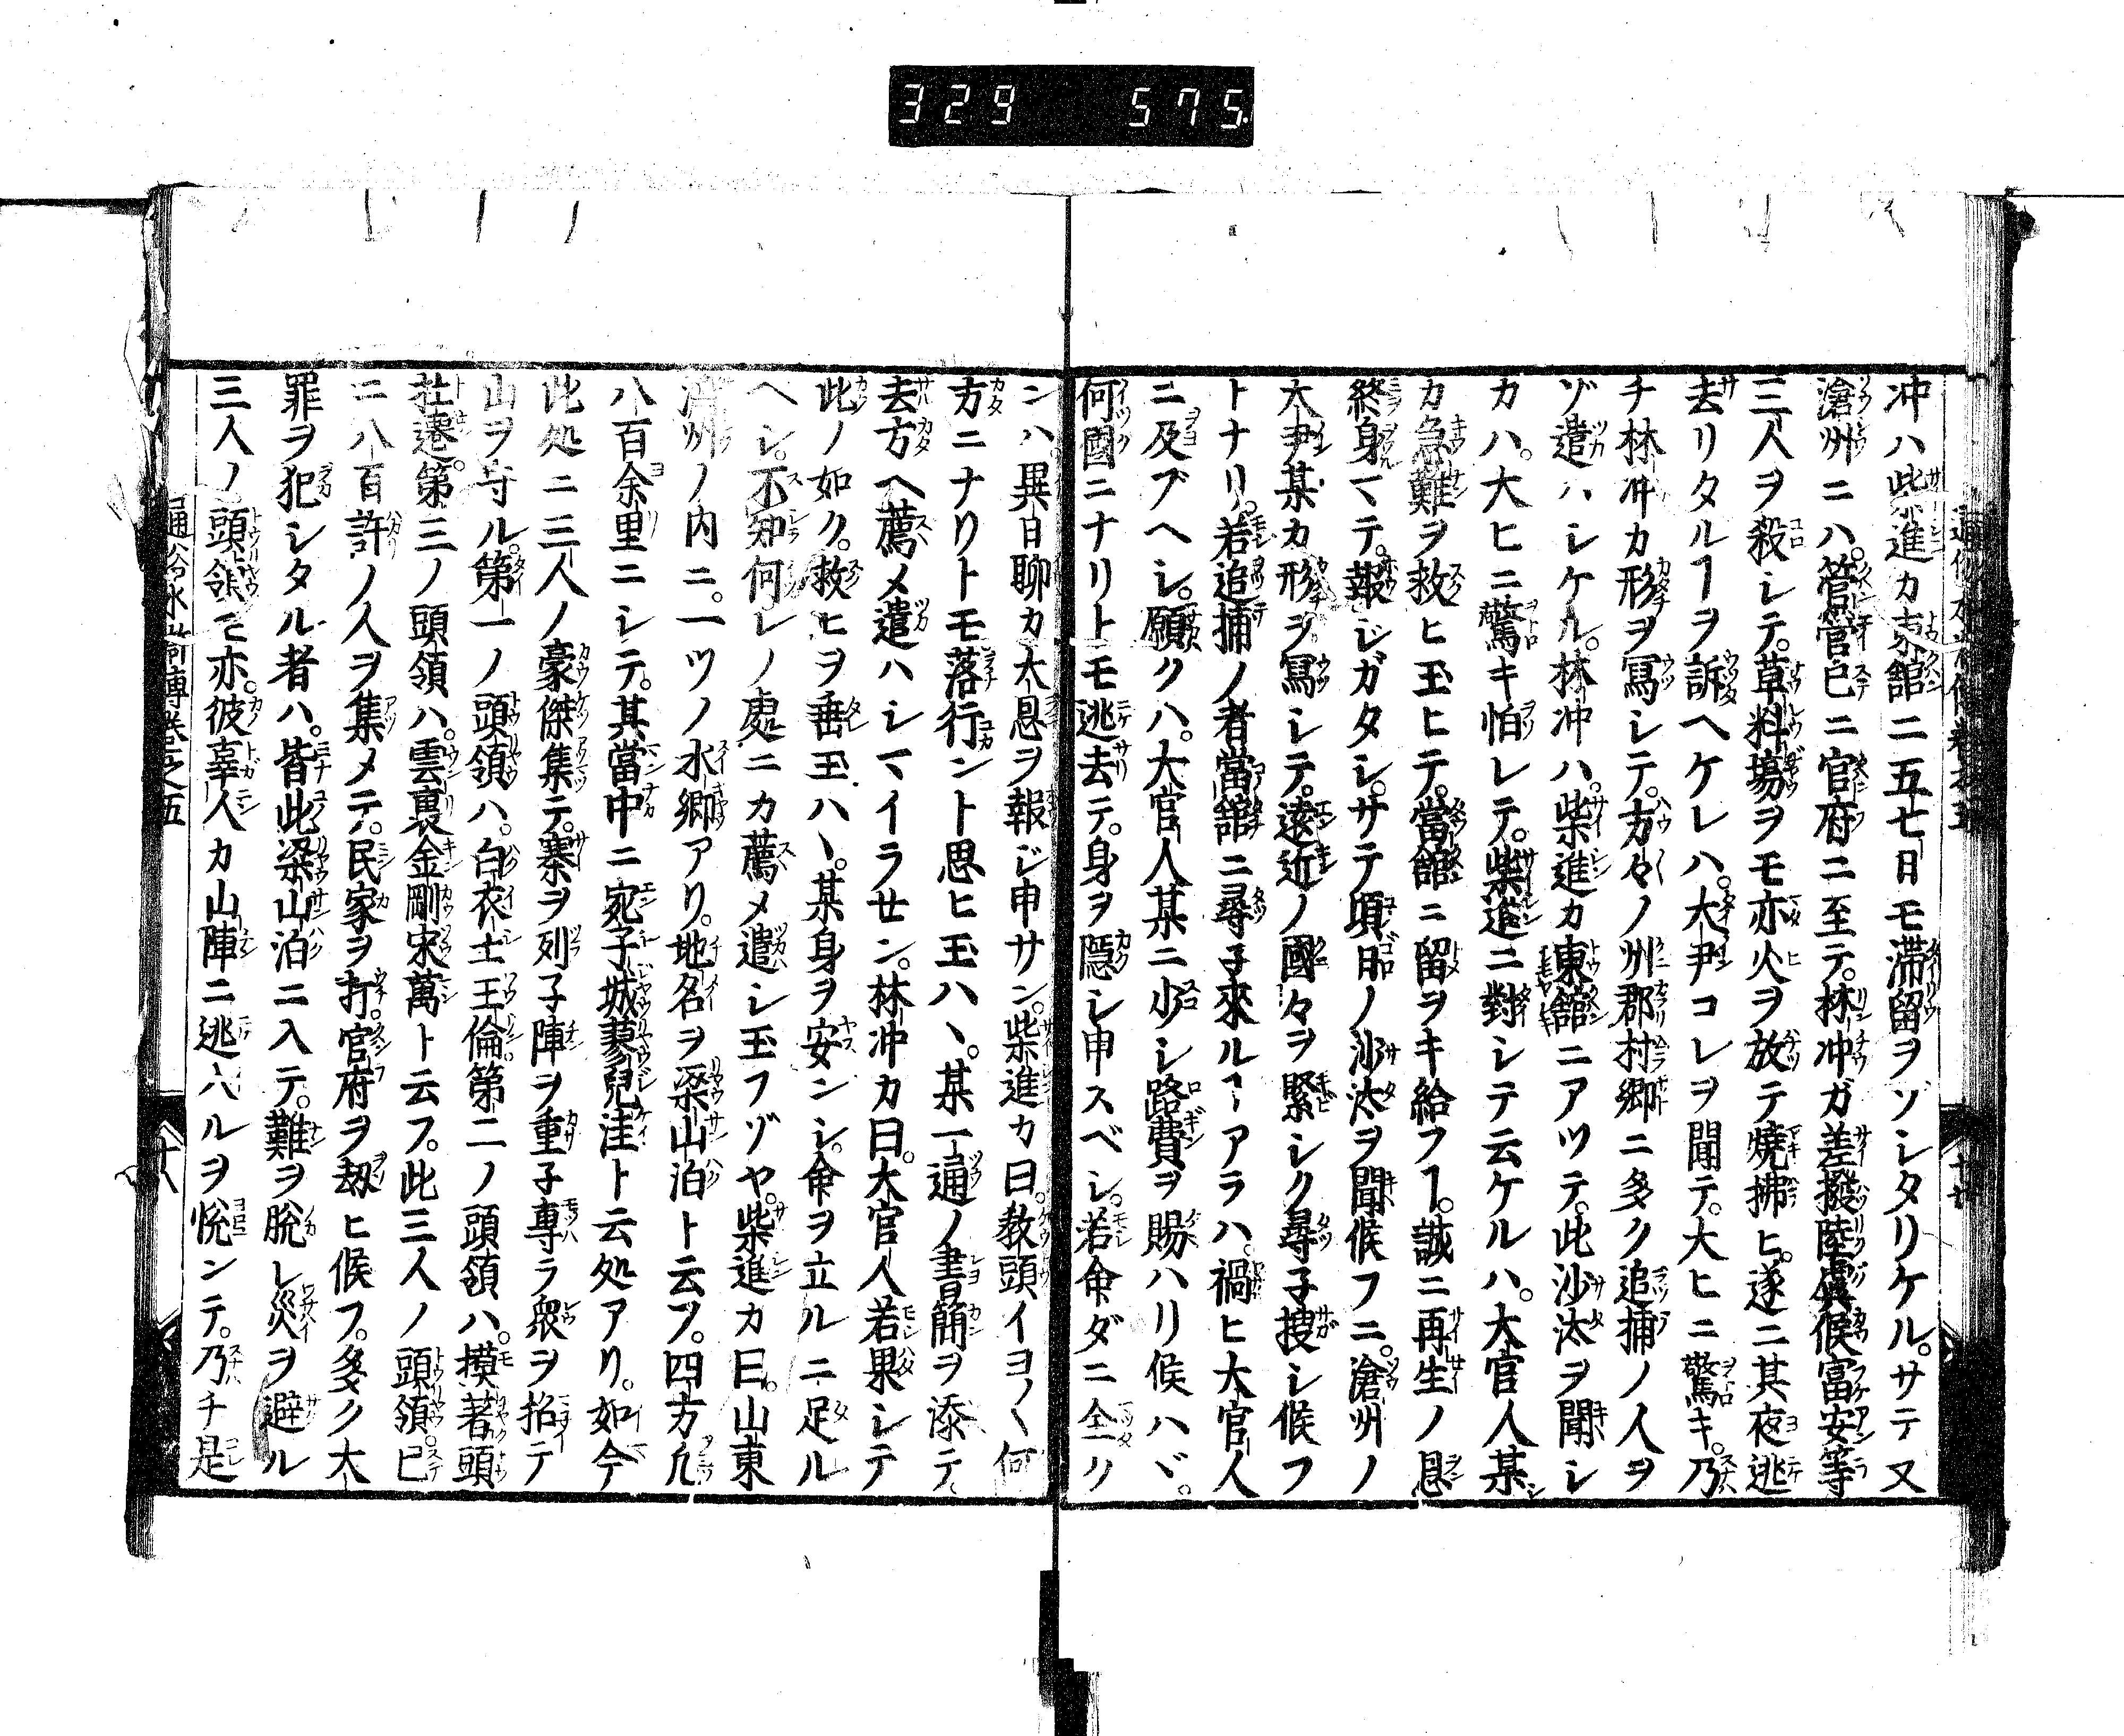 329 575.
冲ハ柴進カ東舘ニ五七日モ滞留ヲゾシタリケル。サテ又
滄州ニハ。管営已ニ官府ニ至テ。林冲ガ差撥陸虞候富安等
三人ヲ殺シテ。草料場ヲモ亦火ヲ放テ焼拂ヒ。遂ニ其夜逃
去リタルヿヲ訴ヘケレハ。大尹コレヲ聞テ。大ヒニ驚キ。乃
チ林冲カ形ヲ冩シテ。方々ノ州郡村郷ニ多ク追捕ノ人ヲ
ゾ遣ハシケル。林冲ハ。柴進カ東舘ニアツテ。此沙汰ヲ聞シ
カハ。大ヒニ驚キ怕レテ。柴進ニ對シテ云ケルハ。大官人某
カ急難ヲ救ヒ玉ヒテ。當舘ニ留ヲキ給フヿ。誠ニ再生ノ恩
終身マテ。報ジガタシ。サテ頃日ノ沙汰ヲ聞候フニ。滄州ノ
大尹某カ形ヲ冩シテ。遠近ノ國々ヲ緊シク尋子捜シ候フ
トナリ。若追捕ノ者當舘ニ尋子來ルヿアラハ。禍ヒ大官人
ニ及ブヘシ。願クハ。大官人某ニ少シ路費ヲ賜ハリ候ハヾ。
何國ニナリトモ逃去テ。身ヲ隱シ申スベシ。若命ダニ全ク
シハ。異日聊カ大恩ヲ報ジ申サン。柴進カ曰。教頭イヨ〱何
方ニナリトモ落行ント思ヒ玉ハヽ。某一通ノ書簡ヲ添テ。
去方ヘ薦メ遣ハシマイラセン。林冲カ曰。大官人若果シテ
此ノ如ク。救ヒヲ垂玉ハヽ。某身ヲ安ンシ。命ヲ立ルニ足ル
ヘシ。不知何レノ處ニカ薦メ遣シ玉フゾヤ。柴進カ曰。山東
濟州ノ内ニ。一ツノ水郷アリ。地名ヲ梁山泊ト云フ。四方凡
八百余里ニシテ。其當中ニ宛子城蓼兒洼ト云処アリ。如今
此処ニ三人ノ豪傑集テ。寨ヲ列子陣ヲ重子専ラ衆ヲ招テ
山ヲ守ル。第一ノ頭領ハ。白衣士王倫。第二ノ頭領ハ。摸著頭
杜遷。第三ノ頭領ハ。雲裏金剛宋萬ト云フ。此三人ノ頭領已
ニ八百許ノ人ヲ集メテ。民家ヲ打。官府ヲ刼ヒ候フ。多ク大
罪ヲ犯シタル者ハ。皆此梁山泊ニ入テ。難ヲ脱レ災ヲ避ル
三人ノ頭領モ亦。彼辜人カ山陣ニ逃入ルヲ悦ンテ。乃チ是
通俗水滸傳卷之五
十八